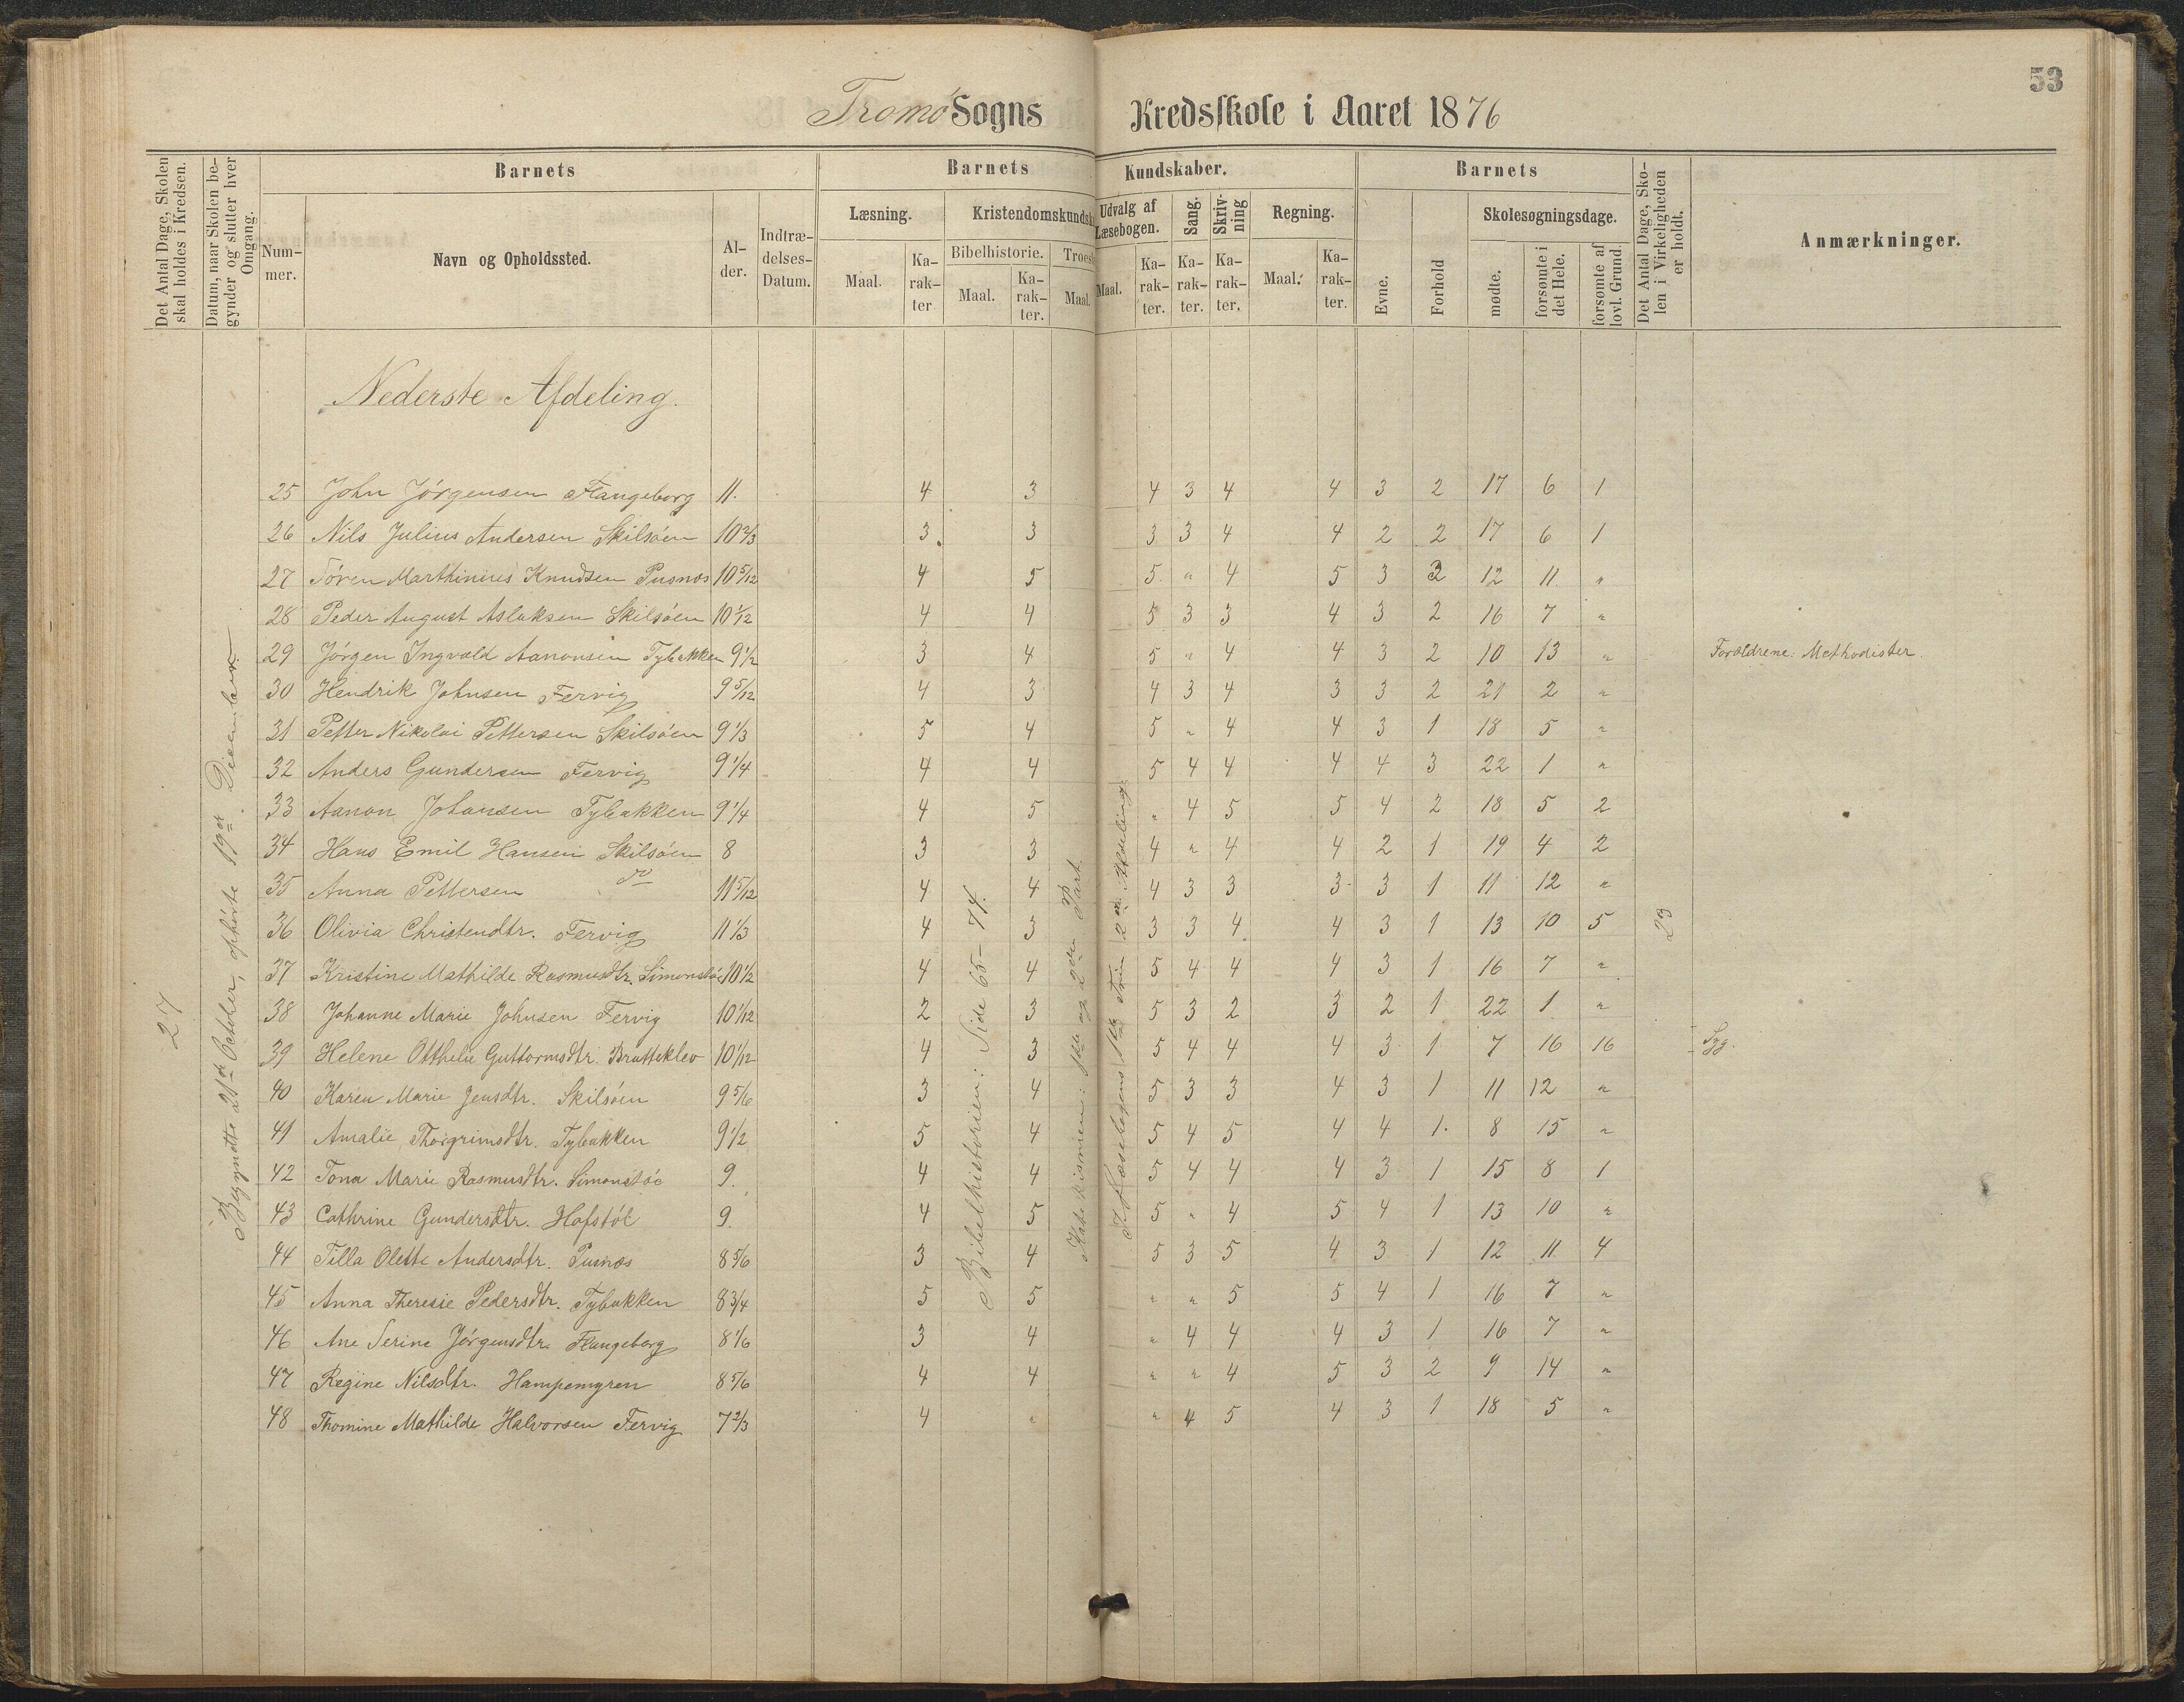 53
Tromö Sogns Kredsskole i Aaret 1876
Det Antal Dage, Skolen skal holdes i Kredsen.
Datum, naar Skolen begynder og slutter hver Omgang.
Barnets
Barnets Kundskaber.
Barnets
Det Antal Dage, Skolen i Virkeligheden er holdt.
Anmærkninger.
Nummer.
Navn og Opholdssted.
Alder.
Indtrædelses-Datum.
Læsning.
Kristendomskundsk
Udvalg af Læsebogen.
Sang.
Skrivning
Regning.
Evne.
Forhold
Skolesøgningsdage.
Bibelhistorie.
Troes
Maal.
Karakter
Maal.
Karakter.
Maal.
Maal.
Karakter.
Karakter.
Karakter.
Maal.
Karakter.
mødte.
forsømte i det Hele.
forsømte af lovl. Grund.
Nederste Afdeling.
27
Begyndte 21de October, ophörte 19de December.
Bibelhistorien: Side 65-74.
Katekismen: 1ste og 2den Part.
I Læsebogens 1ste Trin 2den Afdeling.
23
25 John Jörgensen Flangeborg 11. 4 3 4 3 4 4 3 2 17 6 1
26 Nils Julius Andersen Skilsöen 10 2/3 3. 3 3 3 4 4 2 2 17 6 1
27 Sören Marthinius Knudsen Pusnæs 10 5/12 4 5 5 " 4 5 3 2 12 11 "
28 Peder August Aslaksen Skilsöen 10 1/12 4 4 5 3 3 4 3 2 16 7 "
29 Jörgen Ingvald Aanonsen Tybakken 9 1/2 3 4 5 " 4 4 3 2 10 13 " Forældrene: Methodister.
30 Hendrik Johnsen Fervig 9 5/12 4 3 4 3 4 3 3 2 21 2 "
31 Petter Nikolai Pettersen Skilsöen 9 1/3 5 4 5 " 4 4 3 1 18 5 "
32 Anders Gundersen Fervig 9 1/4 4 4 5 4 4 4 4 3 22 1 "
33 Aanon Johansen Tybakken 9 1/4 4 5 " 4 5 5 4 2 18 5 2
34 Hans Emil Hansen Skilsöen 8 3 3 4 " 4 4 2 1 19 4 2
35 Anna Pettersen do 11 5/12 4 4 4 3 3 3 3 1 11 12 "
36 Olivia Christendtr. Fervig 11 1/3 4 3 3 3 4 4 3 1 13 10 5
37 Kristine Mathilde Rasmusdtr. Simonstöe 10 1/2 4 4 5 4 4 4 3 1 16 7 "
38 Johanne Marie Johnsen Fervig 10 1/12 2 3 5 3 2 3 2 1 22 1 "
39 Helene Otthelie Guttormsdtr. Bratteklev 10 1/12 4 3 5 4 4 4 3 1 7 16 16 Syg.
40 Karen Marie Jensdtr. Skilsöen 9 5/6 3 4 5 3 3 4 3 1 11 12 "
41 Amalie Thorgrimsdtr. Tybakken 9 1/2 5 4 5 4 5 4 4 1. 8 15 "
42 Tona Marie Rasmusdtr. Simonstöe 9. 4 4 5 4 4 4 3 1 15 8 1
43 Cathrine Gundersdtr. Hofstöl 9. 4 5 5 " 4 5 4 1 13 10 "
44 Tilla Olette Andersdtr. Pusnæs 8 5/6 3 4 5 3 5 4 3 1 12 11 4
45 Anna Theresie Pedersdtr. Tybakken 8 3/4 5 5 " " 5 5 4 1 16 7 "
46 Ane Serine Jörgensdtr. Flangeborg 8 1/6 3 4 " 4 4 4 3 1 16 7 "
47 Regine Nilsdtr. Hampemyren 8 5/6 4 4 " " 4 5 3 2 9 14 "
48 Thomine Mathilde Halvorsen Fervig 7 2/3 4 " " 4 5 4 3 1 18 5 "